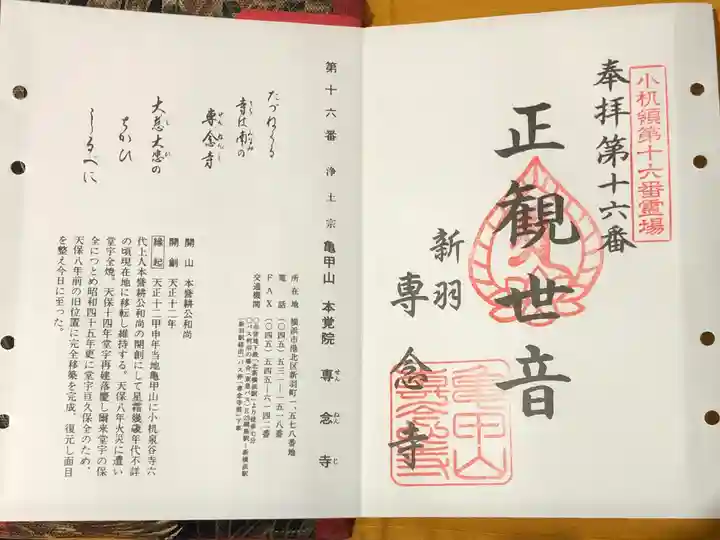 小机領第十六番霊場
奉拝第十六番
正観世音
新羽
専念寺
亀甲山
専念寺
第十六番 浄土宗 亀甲山 本覚院 専念寺
せんねんじ
たづねくる
寺は南の
専念寺
せんねんじ
大慈大悲の
ちかひ
しるべに
所在地 横浜市港北区新羽町一、五七八番地
電話 (〇四五)五三一―一五一八番
FAX (〇四五)五四五―六一四二番
交通機関
開山 本誉耕公和尚
開創 天正十二年
縁起 天正十二甲申年当地亀甲山に小机泉谷寺六
代上人本誉耕公和尚の開創にして星霜幾歳年代不詳
の頃現在地に移転し維持する。天保八年火災に遭い
堂宇全焼。天保十四年堂宇再建落慶し爾来堂宇の保
全につとめ昭和四十五年更に堂宇恒久保全のため、
天保八年前の旧位置に完全移築を完成、復元し面目
を整え今日に至った。